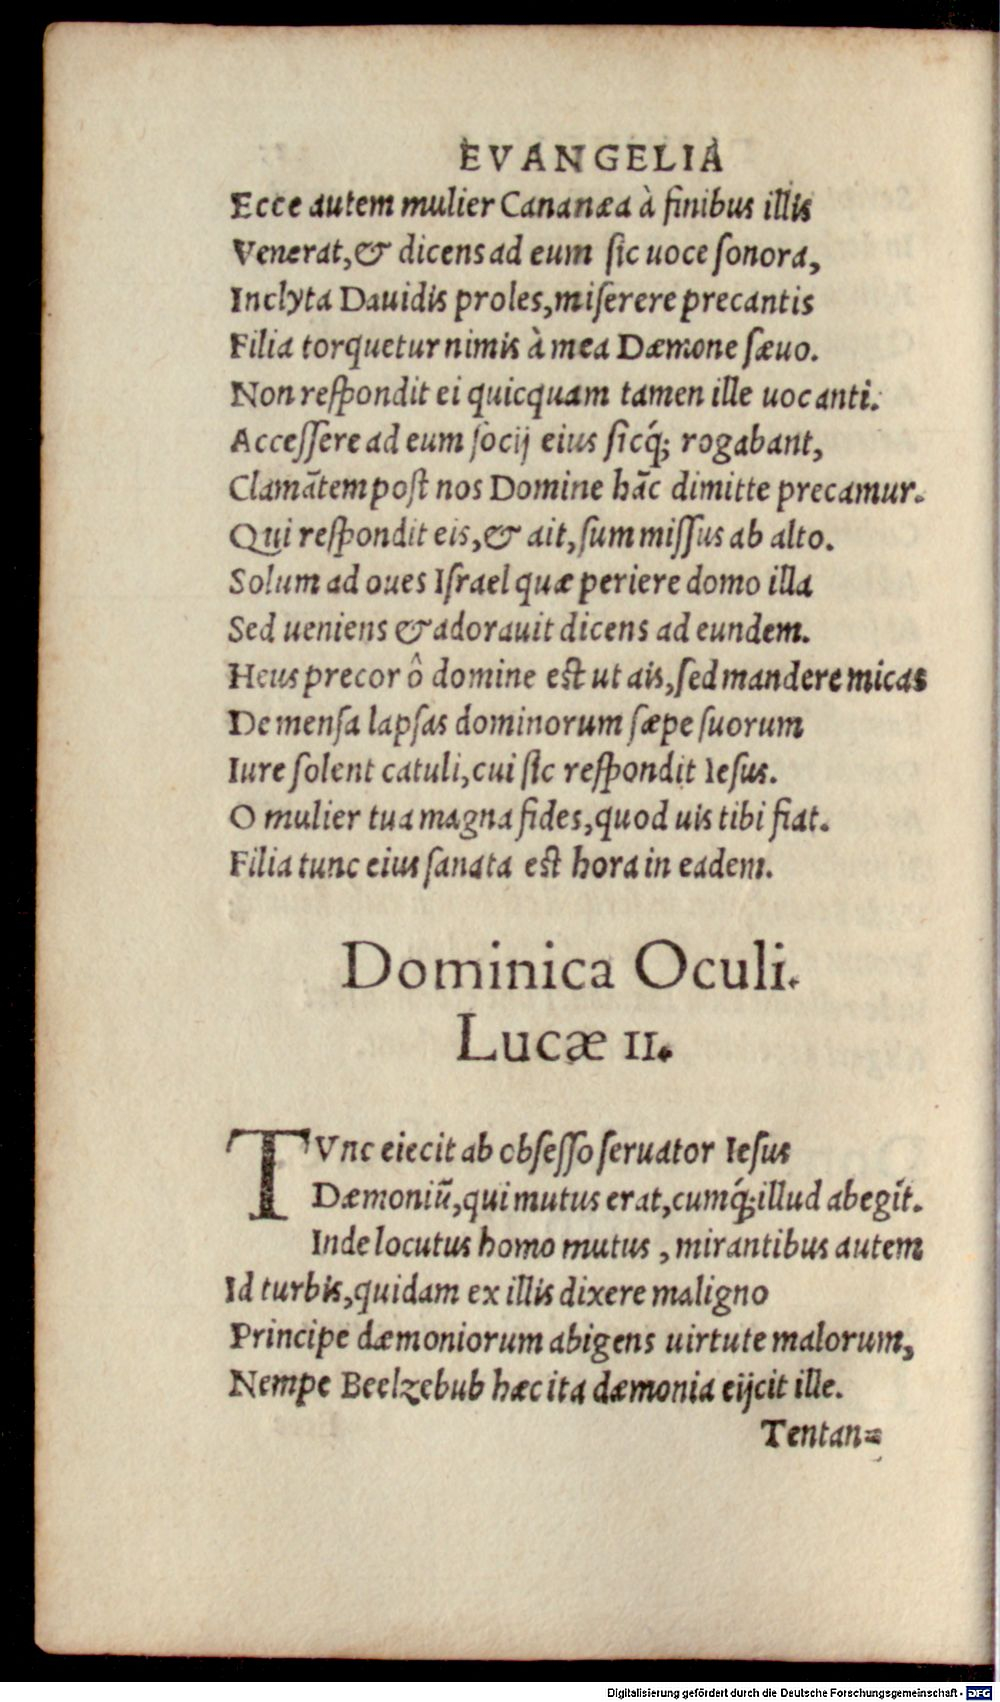 EVANGELIA
Ecce autem mulier Cananæa à finibus illis
Venerat,& dicens ad eum sic uoce sonora,
Inclyta Dauidis proles,miserere precantis
Filia torquetur nimis à mea Dæmone sæuo.
Non respondit ei quicquam tamen ille uocanti.
Accessere ad eum socij eius sicq́; rogabant,
Clamātem post nos Domine hāc dimitte precamur.
Qui respondit eis,& ait,sum missus ab alto.
Solum ad oues Israel quæ periere domo illa
Sed ueniens & adorauit dicens ad eundem.
Heus precor ô domine est ut ais,sed mandere micas
De mensa lapsas dominorum sæpe suorum
Iure solent catuli,cui sic respondit Iesus.
O mulier tua magna fides,quod uis tibi fiat.
Filia tunc eius sanata est hora in eadem.
Dominica Oculi.
Lucæ 11.
TVnc eiecit ab obsesso seruator Iesus
Dæmoniū,qui mutus erat,cumq́;illud abegit.
Inde locutus homo mutus , mirantibus autem
Id turbis,quidam ex illis dixere maligno
Principe dæmoniorum abigens uirtute malorum,
Nempe Beelzebub hæc ita dæmonia eijcit ille.
Tentan=
Digitalisierung gefördert durch die Deutsche Forschungsgemeinschaft - DFG